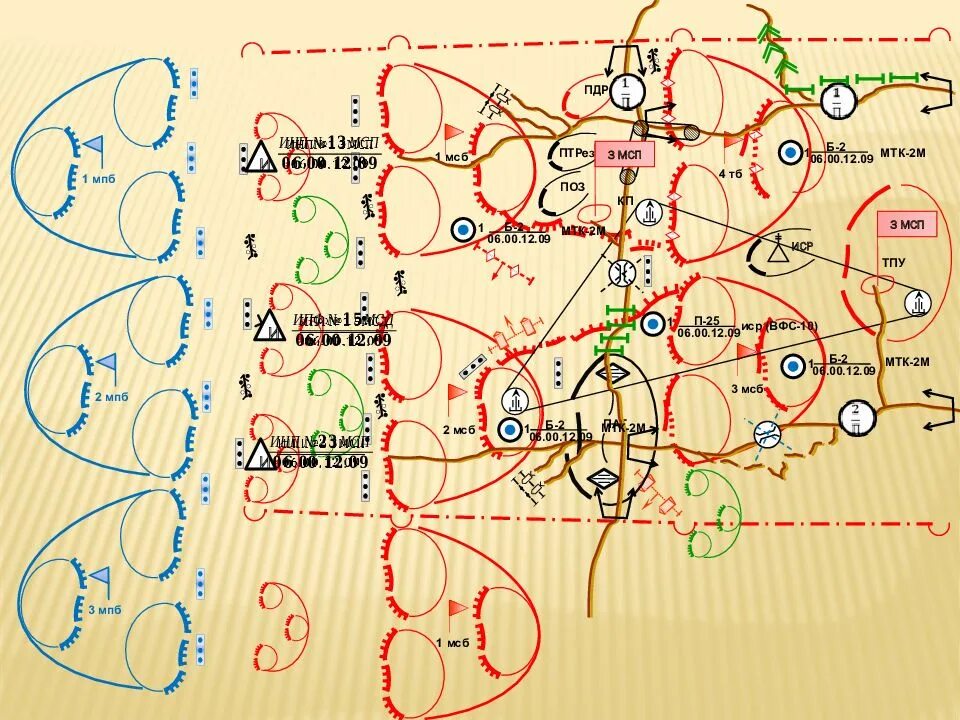 1
П
ПДР
1
П
ИНП №13 МСП
06.00.12.09
1 мсб
ПТРез
3 МСП
1
Б-2
06.00.12.09
МТК-2М
4 тб
1 мпб
ПОЗ
КП
1
Б-2
06.00.12.09
МТК-2М
3 МСП
ИСР
ТПУ
ИНП №15 МСП
06.00.12.09
1
П-25
06.00.12.09
иср (ВФС-10)
2 мпб
1
Б-2
06.00.12.09
МТК-2М
3 мсб
2 мсб
1
Б-2
06.00.12.09
МТК-2М
2
П
ИНП №23 МСП
06.00.12.09
И
И
И
3 мпб
1 мсб